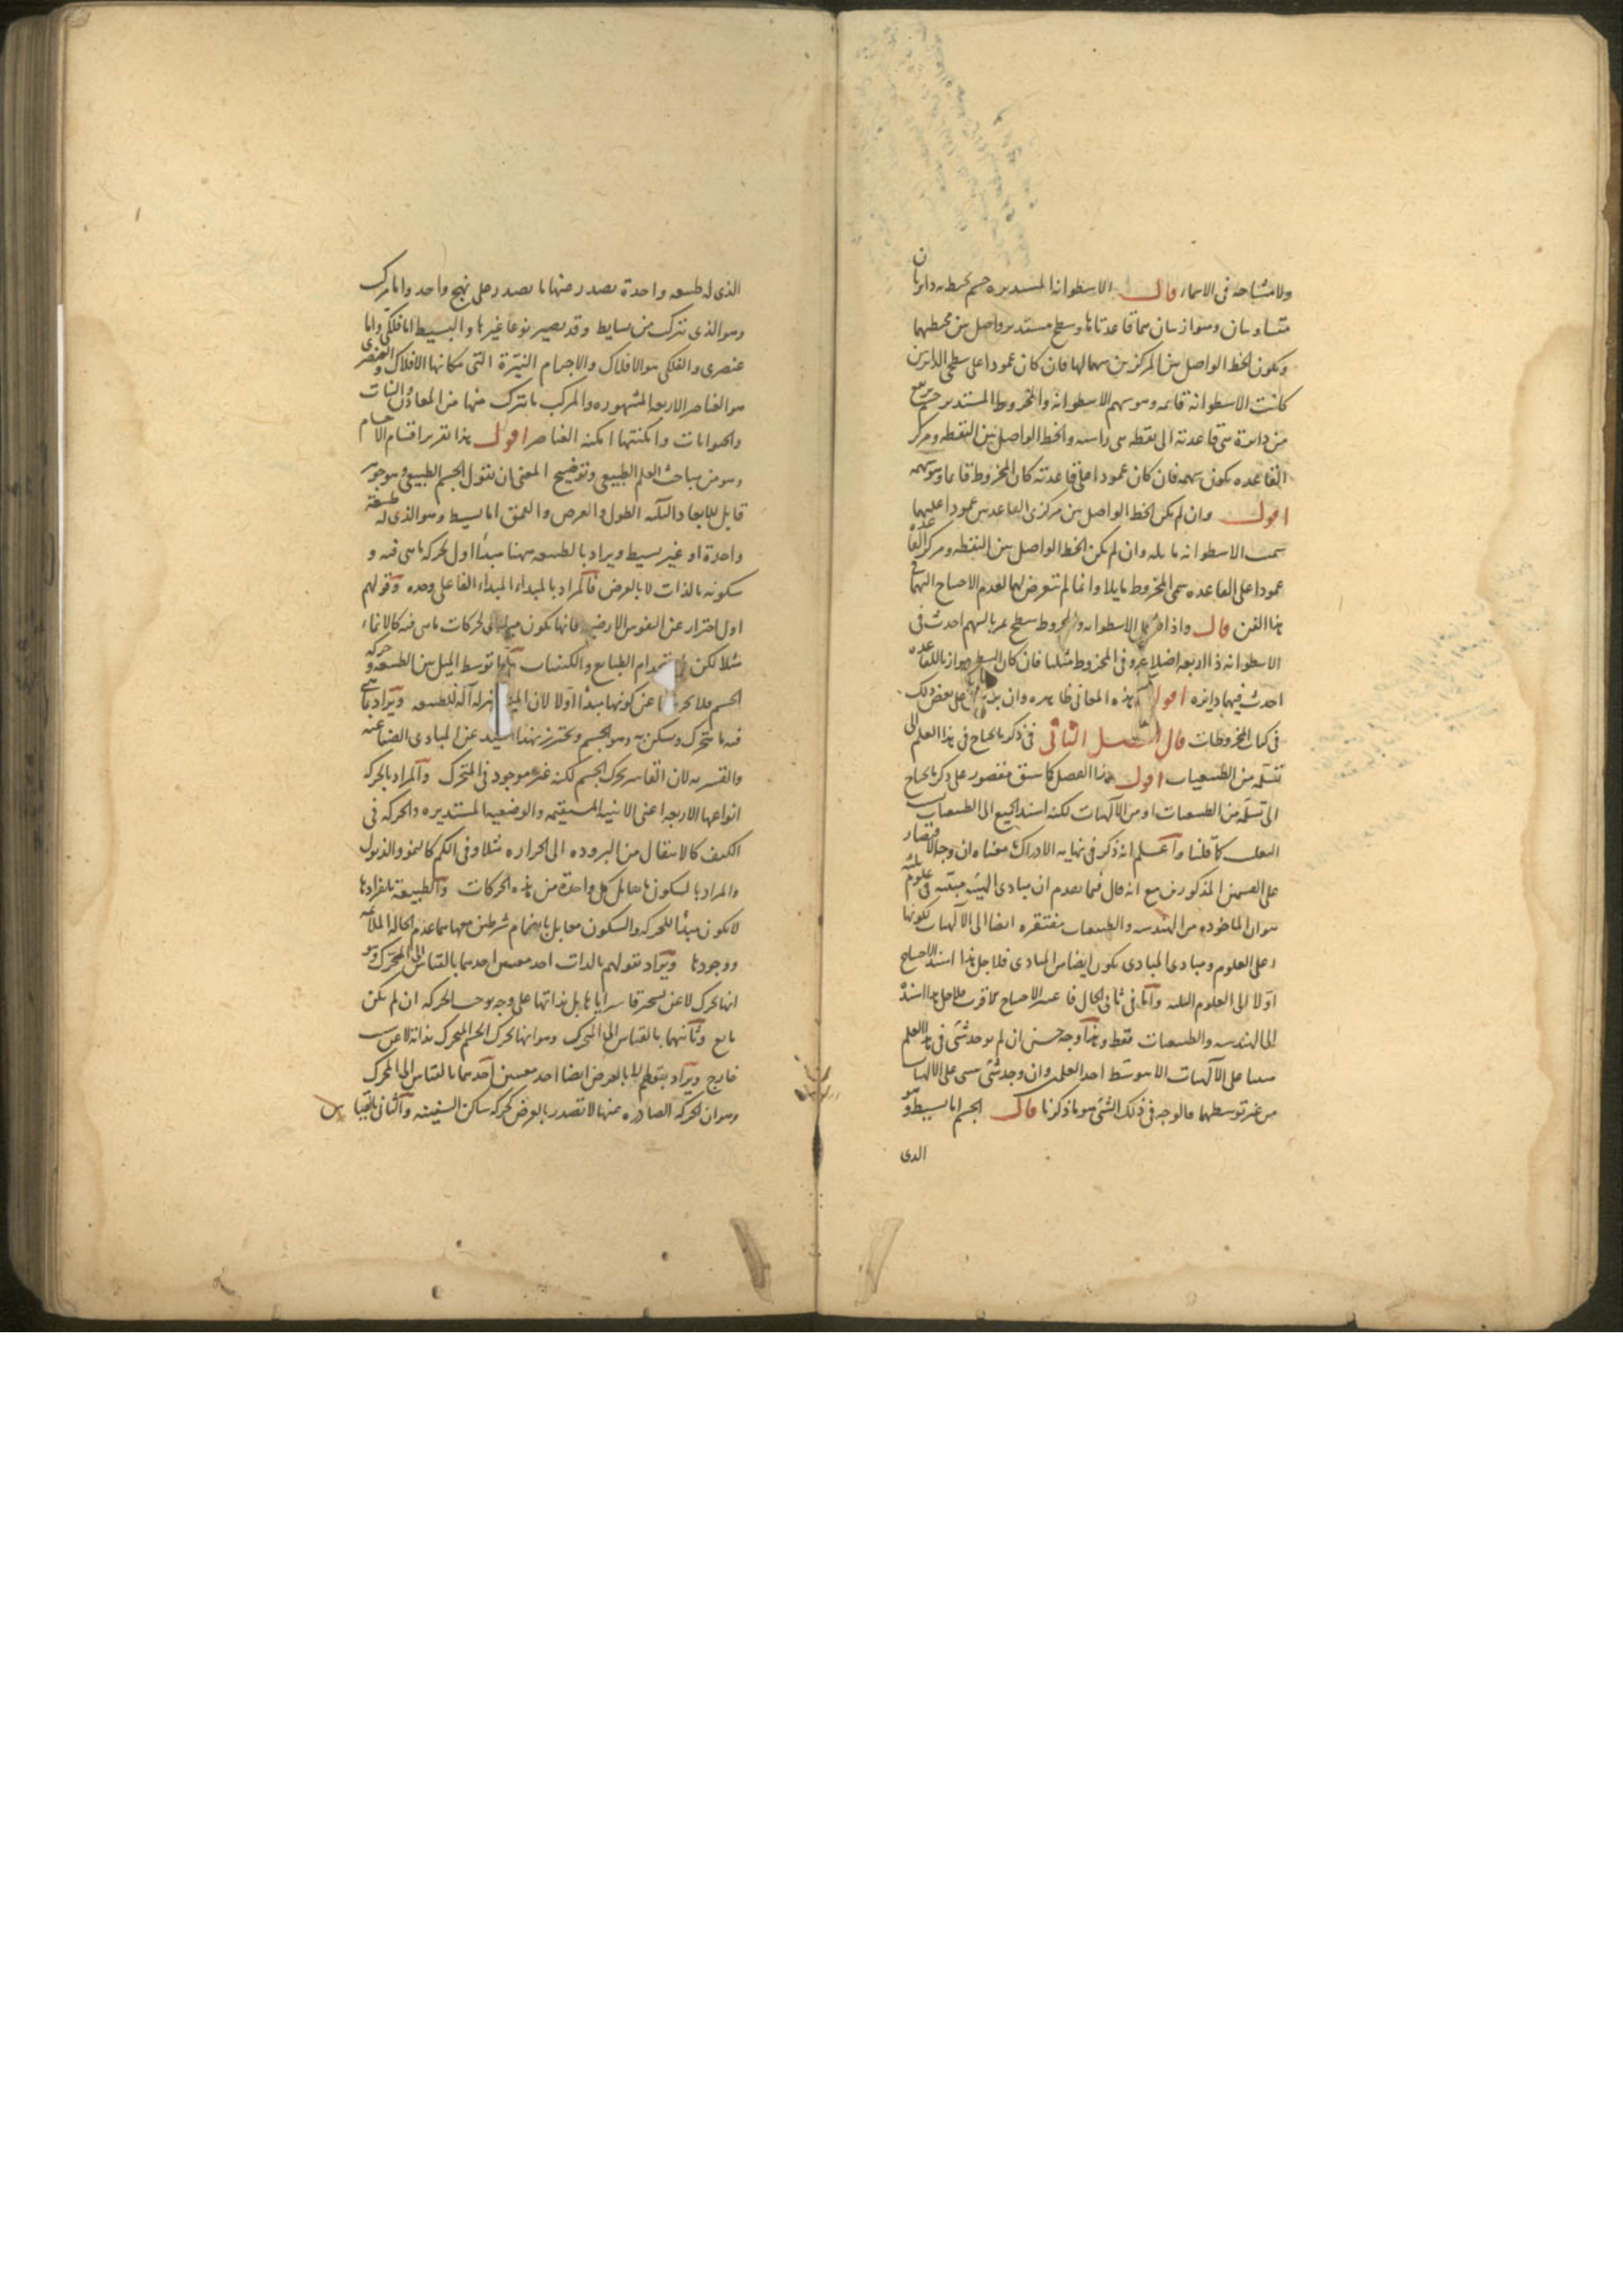 ولا مشاحة فى الاسماء قال الاسطوانة المستديره جسم يحيط به دايرتان
متساويتان ومتوازيتان هما قاعدتاها وسطح مستدير واصل بين محيطيهما
ويكون الخط الواصل بين المركزين سهما لها فان كان عمودا على سطحى الدايرتين
كانت الاسطوانة قايمه وهو سهم الاسطوانة والمخروط المستدير جسم يرتفع
من دايرة هى قاعدته الى نقطه هى راسه والخط الواصل بين النقطه ومركز
القاعده يكون سهمه فان كان عمودا على قاعدته كان المخروط قايما وهو سهمه
اقول وان لم يكن الخط الواصل بين مركزى القاعدتين عمودا عليهما
سميت الاسطوانه مايله وان لم يكن الخط الواصل بين النقطه ومركز القاعده
عمودا على القاعده سمى المخروط مايلا وانما لم يتعرض لهما لعدم الاحتياج اليهما فى
هذا الفن قال واذا الاسطوانه والمخروط سطح يمر بالسهم احدث فى
الاسطوانه ذا اربعه اضلاع وفى المخروط مثلثا فان كان السطح موازيا للقاعده
احدث فيهما دايره اقول هذه المعانى ظاهره وان على بعض ذلك
فى كتاب المخروطات قال الفصل الثانى فى ذكر ما يحتاج فى هذا العلم الى
تسلمه من الطبيعيات اقول هذا الفصل كما سبق مقصور على ذكر ما يحتاج
الى تسلمه من الطبيعيات او من الالهيات لكنه اسند الجميع الى الطبيعيات
كما قلنا واعلم انه ذكر فى نهايه الادراك ما معناه ان وجه الاقتصار
على القسمين المذكورين مع انه قال فيما تقدم ان مبادى الهيئه مبينه فى علوم ثلثه
هو ان الماخوذه من الهندسه والطبيعيات مفتقره ايضا الى الالهيات لكونها
على العلوم ومبادى المبادى يكون ايضا من المبادى فلاجل هذا اسند الاحتياج
اولا الى العلوم الثلثه واما فى ثانى الحال الاحتياج فلاجل هذا اسنده
الى الهندسه والطبيعيات فقط وهذا وجه حسن ان لم يوجد شئ فى هذا العلم
مبينا على الالهيات الا بتوسط احد العلمين وان وجد شئ مبنى على الالهيات
من غير توسطهما فالوجه فى ذلك الشئ هو ما ذكرنا قال الجسم اما بسيط وهو
الذى
الذى له طبيعه واحدة يصدر عنها ما يصدر على نهج واحد واما مركب
وهو الذى يتركب من بسايط وقد يصير نوعا غيرها والبسيط اما فلكى واما
عنصرى والفلكى هو الافلاك والاجرام النيّرة التى مكانها الافلاك والعنصرى
هو العناصر الاربعه المشهوره والمركب ما يتركب منها من المعادن والنبات
والحيوانات وامكنتها امكنه العناصر اقول هذا تقرير اقسام الاجسام
وهو من مباحث العلم الطبيعى وتوضيح المعنى ان نقول الجسم الطبيعى وهو جوهر
قابل للابعاد الثلثه الطول والعرض والعمق اما بسيط وهو الذى له طبيعة
واحدة او غير بسيط ويراد بالطبيعه ههنا مبدأ اول لحركه ما هى فيه و
سكونه بالذات لا بالعرض فالمراد بالمبداء المبداء الفاعلى وحده وقولهم
اول احتراز عن النفوس الارضيه فانها تكون مبادى لحركات ما هى فيه كالانماء
مثلا لكن باستخدام الطبايع والكيفيات واما توسط الميل بين الطبيعه وحركه
الجسم فلا يخرجها عن كونها مبدأ اولا لان الميل بمنزله آله للطبيعه ويراد بما هى
فيه ما يتحرك ويسكن به وهو الجسم ويحترز بهذا القيد عن المبادى الصناعيه
والقسريه لان القاسر يحرك الجسم لكنه غير موجود فى المتحرك والمراد بالحركه
انواعها الاربعه اعنى الاينيه المستقيمه والوضعيه المستديره والحركه فى
الكيف كالانتقال من البروده الى الحراره مثلا وفى الكم كالنمو والذبول
والمراد بالسكون ما يقابل كل واحدة من هذه الحركات والطبيعة بانفرادها
لا تكون مبدأ للحركه والسكون معا بل بانضمام شرطين معها هما عدم الحاله الملايمه
ووجودها ويراد بقولهم بالذات احد معنيين احدهما بالقياس الى المحرك وهو
انها تحرك لا عن تسخير قاسر اياها بل بذاتها على وجه يوجب الحركه ان لم يكن
مانع وثانيهما بالقياس الى المتحرك وهو انها تحرك الجسم المتحرك بذاته لا عن سبب
خارج ويراد بقولهم لا بالعرض ايضا احد معنيين احدهما بالقياس الى المحرك
وهو ان الحركه الصادره عنها لا تصدر بالعرض كحركه ساكن السفينه والثانى بالقياس